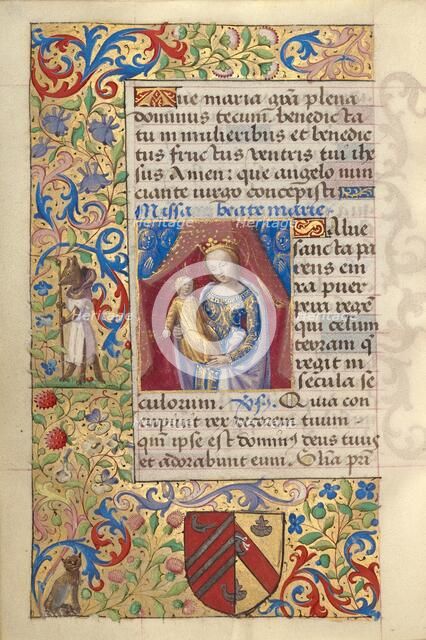 Aue maria grā plena
dominus tecum. benedicta
tu in mulieribus et benedic
tus fructus ventris tui ihe
sus Amen: que angelo nun
ciante virgo concepisti
Missa beate marie
Salue
sancta pa
rens eni
xa puer
pera regē
qui celum
terram q
regit in
secula se
culorum. Quia con
cupiuit rex decorem tuum
qm̄ ipse est domin⁹ deus tuus
et adorabunt eum. Gl̄ia pr̄i